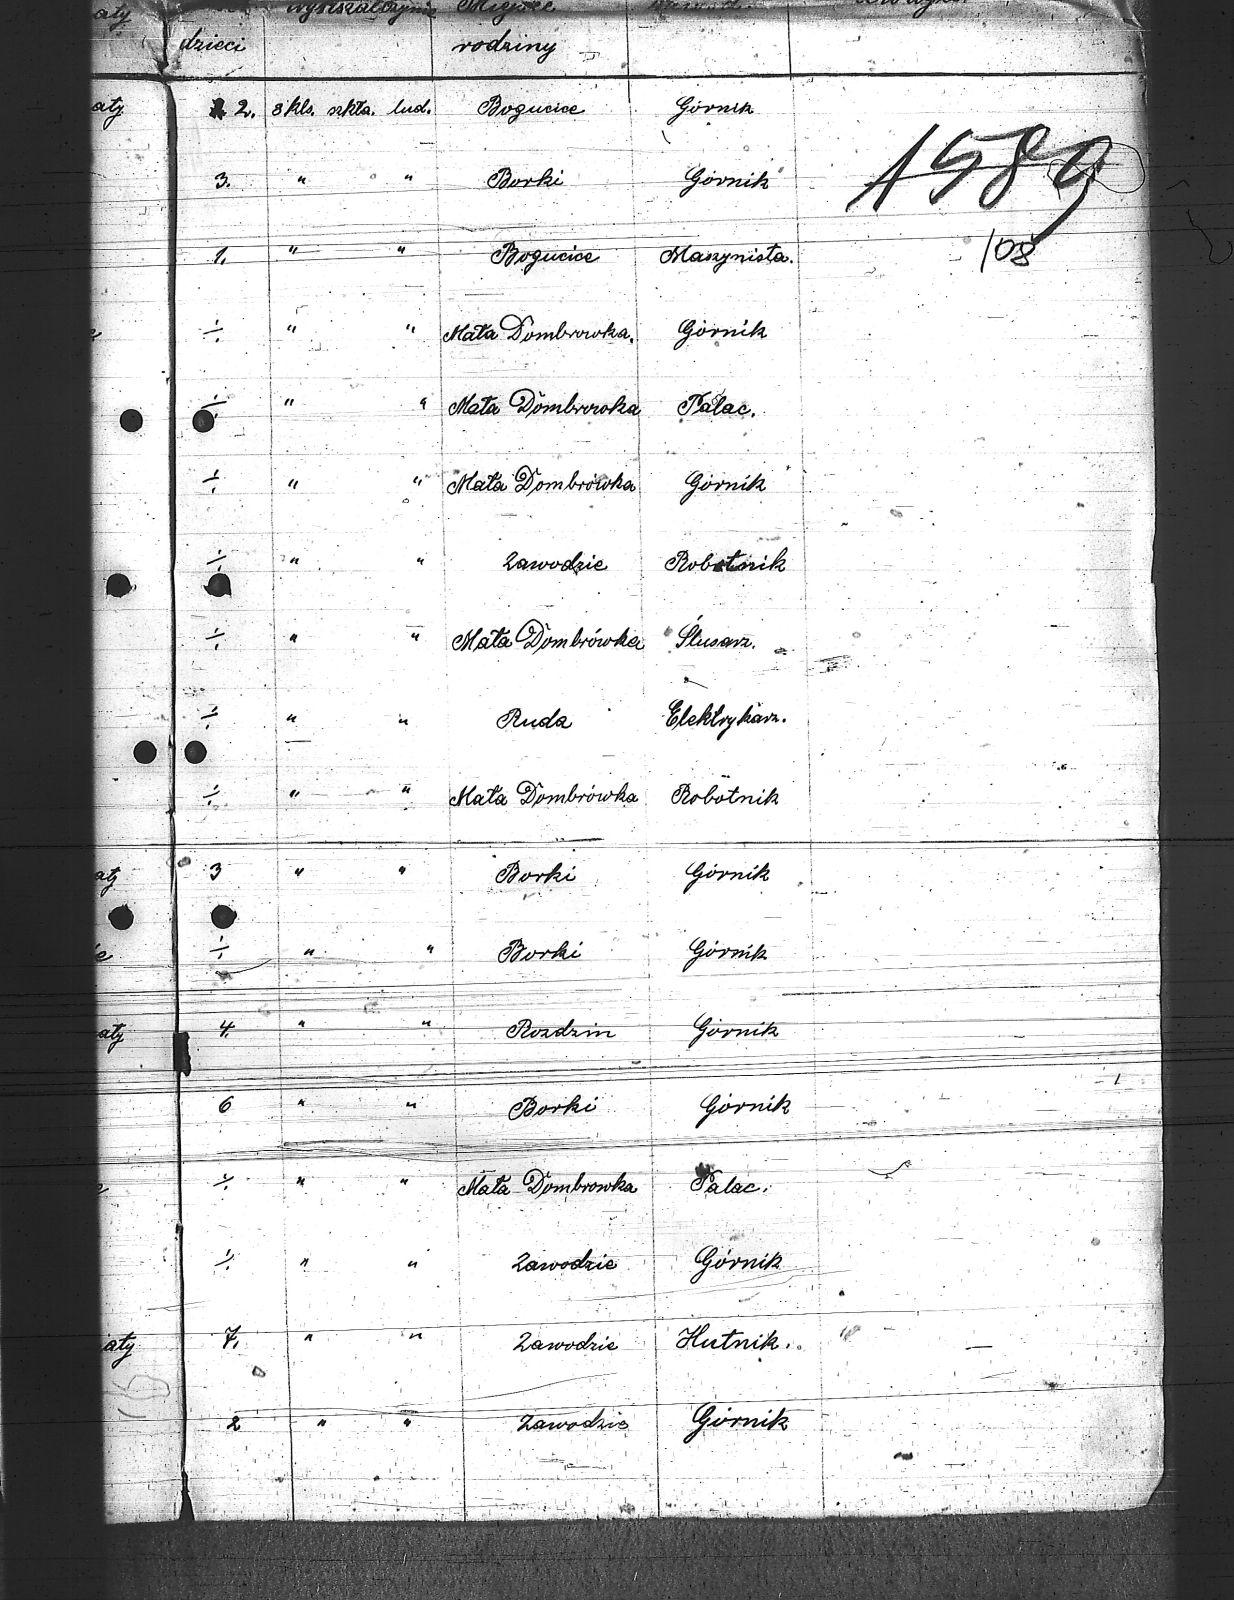 aty wykształcenie Miejsce
dzieci rodziny
aty 2. 8 kls. szkła. lud. Bogucice Górnik
1589
3. " " Borki Górnik
1. " " Bogucice Maszynista.
108
-/. " " Mała Dombrowka. Górnik
-/. " " Mała Dombrowka Palac.
-/. " " Mała Dombrówka Górnik
-/. " " Zawodzie Robotnik
-/. " " Mała Dombrówka Ślusarz.
-/. " " Ruda Elektrykarz.
-/. " " Mała Dombrówka Robotnik
aty 3 " " Borki Górnik
-/. " " Borki Górnik
aty 4. " " Rozdzin Górnik
6 " " Borki Górnik
-/. " " Mała Dombrowka Palac.
-/. " " Zawodzie Górnik
iaty 7. " " Zawodzie Hutnik.
2 " " Zawodzie Górnik